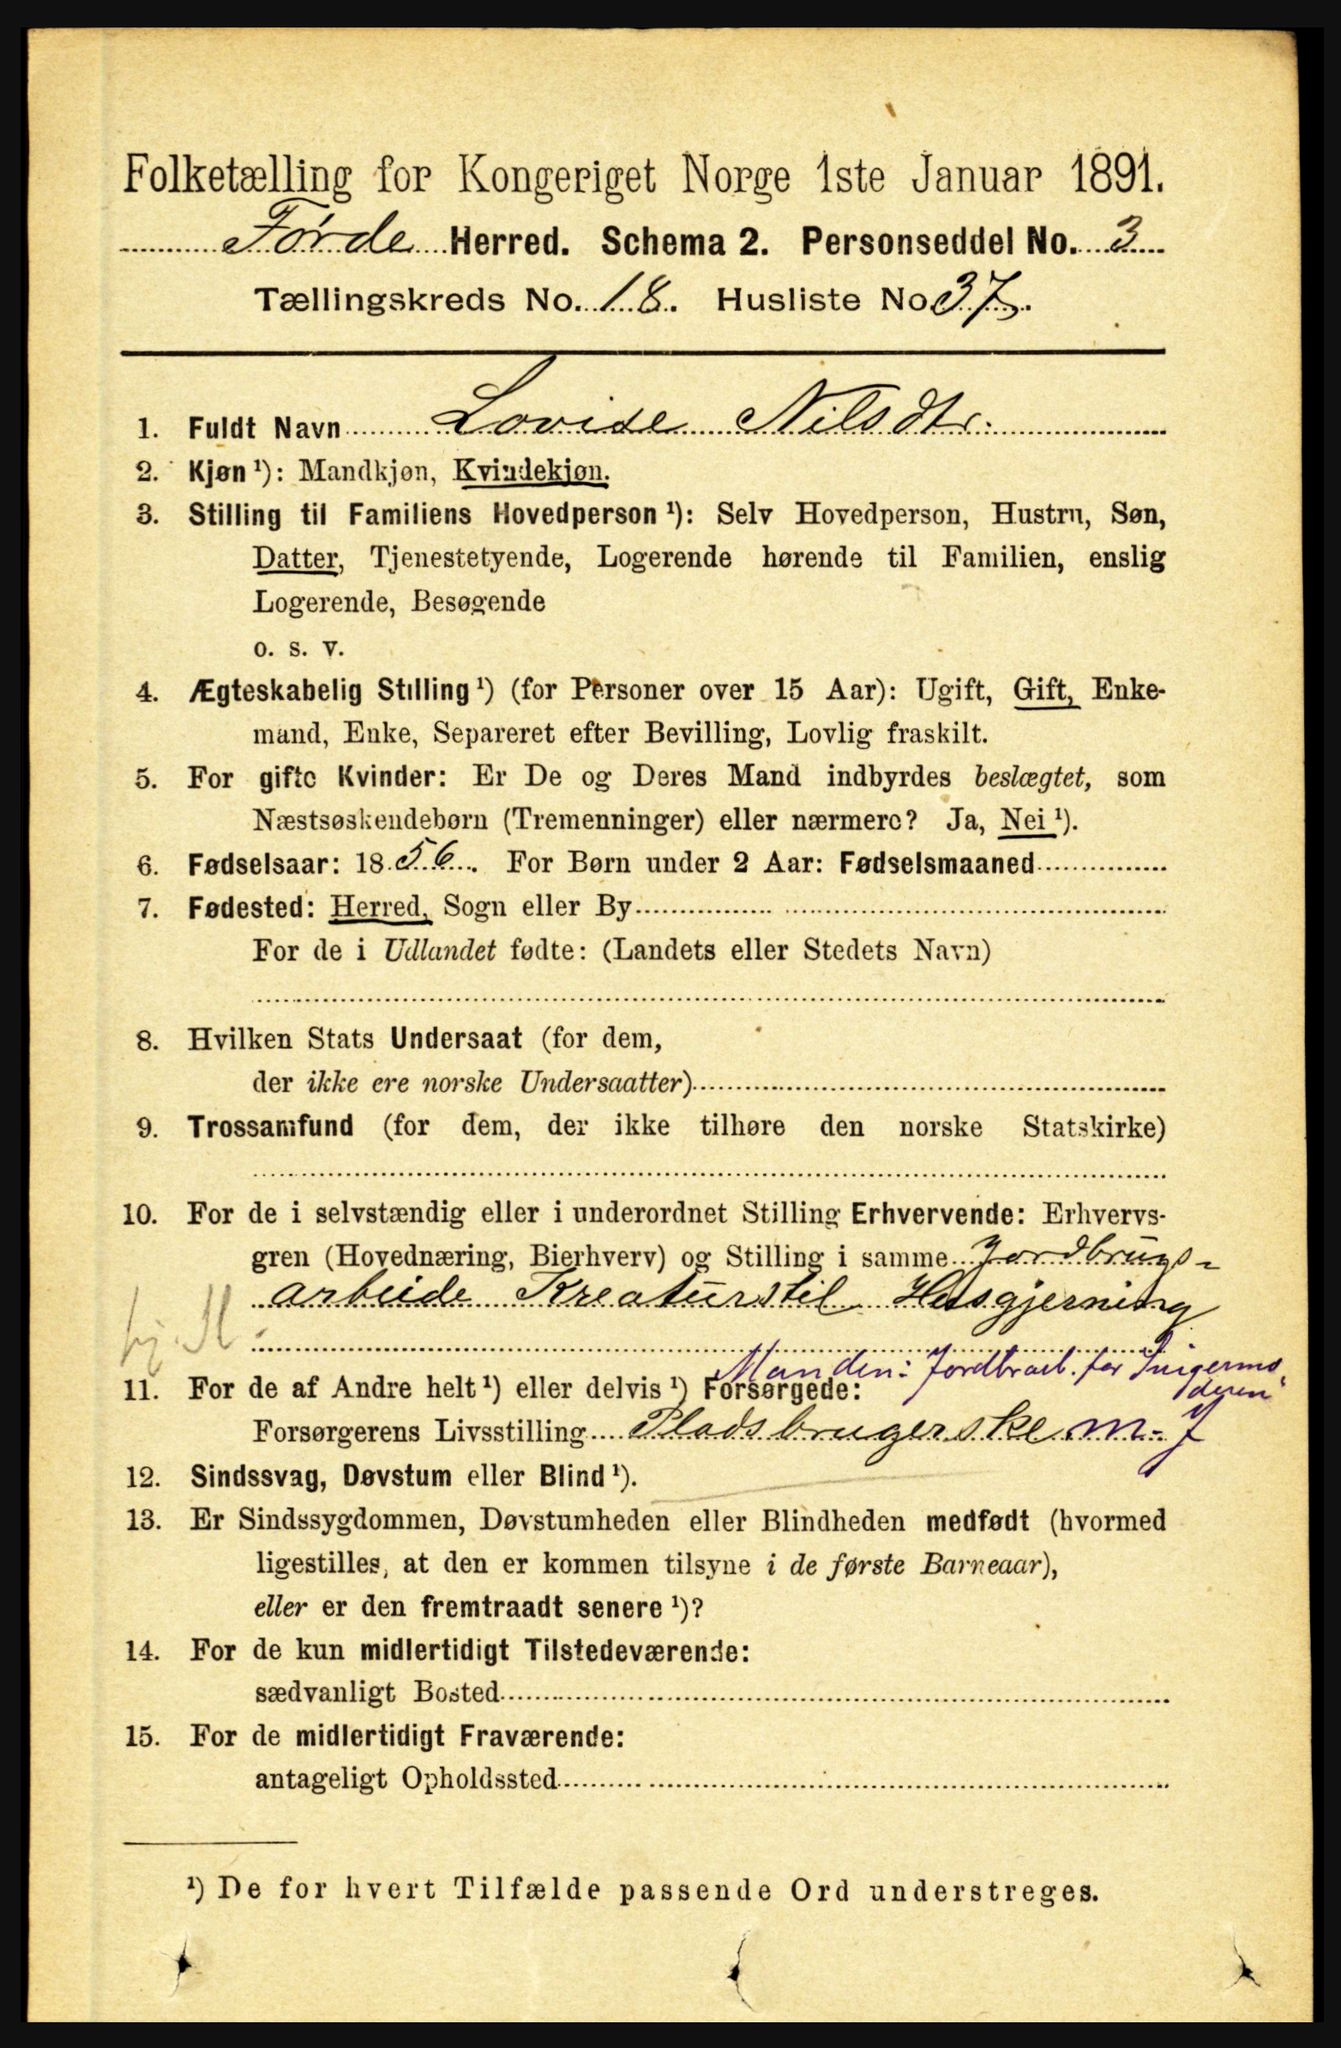 Folketælling for Kongeriget Norge 1ste Januar 1891.
Førde Herred. Schema 2. Personseddel No. 3
Tællingskreds No. 18. Husliste No 37.
1. Fuldt Navn Lovise Nilsdtr.
2. Kjøn ¹): Mandkjøn, Kvindekjøn.
3. Stilling til Familiens Hovedperson ¹): Selv Hovedperson, Hustru, Søn,
Datter, Tjenestetyende, Logerende hørende til Familien, enslig
Logerende, Besøgende
o. s. v.
4. Ægteskabelig Stilling ¹) (for Personer over 15 Aar): Ugift, Gift, Enke-
mand, Enke, Separeret efter Bevilling, Lovlig fraskilt.
5. For gifte Kvinder: Er De og Deres Mand indbyrdes beslægtet, som
Næstsøskendebørn (Tremenninger) eller nærmere? Ja, Nei ¹).
6. Fødselsaar: 1856. For Børn under 2 Aar: Fødselsmaaned
7. Fødested: Herred, Sogn eller By
For de i Udlandet fødte: (Landets eller Stedets Navn)
8. Hvilken Stats Undersaat (for dem,
der ikke ere norske Undersaatter)
9. Trossamfund (for dem, der ikke tilhøre den norske Statskirke)
10. For de i selvstændig eller i underordnet Stilling Erhvervende: Erhvervs-
gren (Hovednæring, Bierhverv) og Stilling i samme Jordbrugs-
arbeide Kreaturstel Husgjerning
Manden: Jordbrarb. for Svigermo-
deren
11. For de af Andre helt ¹) eller delvis ¹) Forsørgede:
Forsørgerens Livsstilling Pladsbrugerske m. J
12. Sindssvag, Døvstum eller Blind ¹).
13. Er Sindssygdommen, Døvstumheden eller Blindheden medfødt (hvormed
ligestilles, at den er kommen tilsyne i de første Barneaar),
eller er den fremtraadt senere ¹)?
14. For de kun midlertidigt Tilstedeværende:
sædvanligt Bosted
15. For de midlertidigt Fraværende:
antageligt Opholdssted
¹) De for hvert Tilfælde passende Ord understreges.